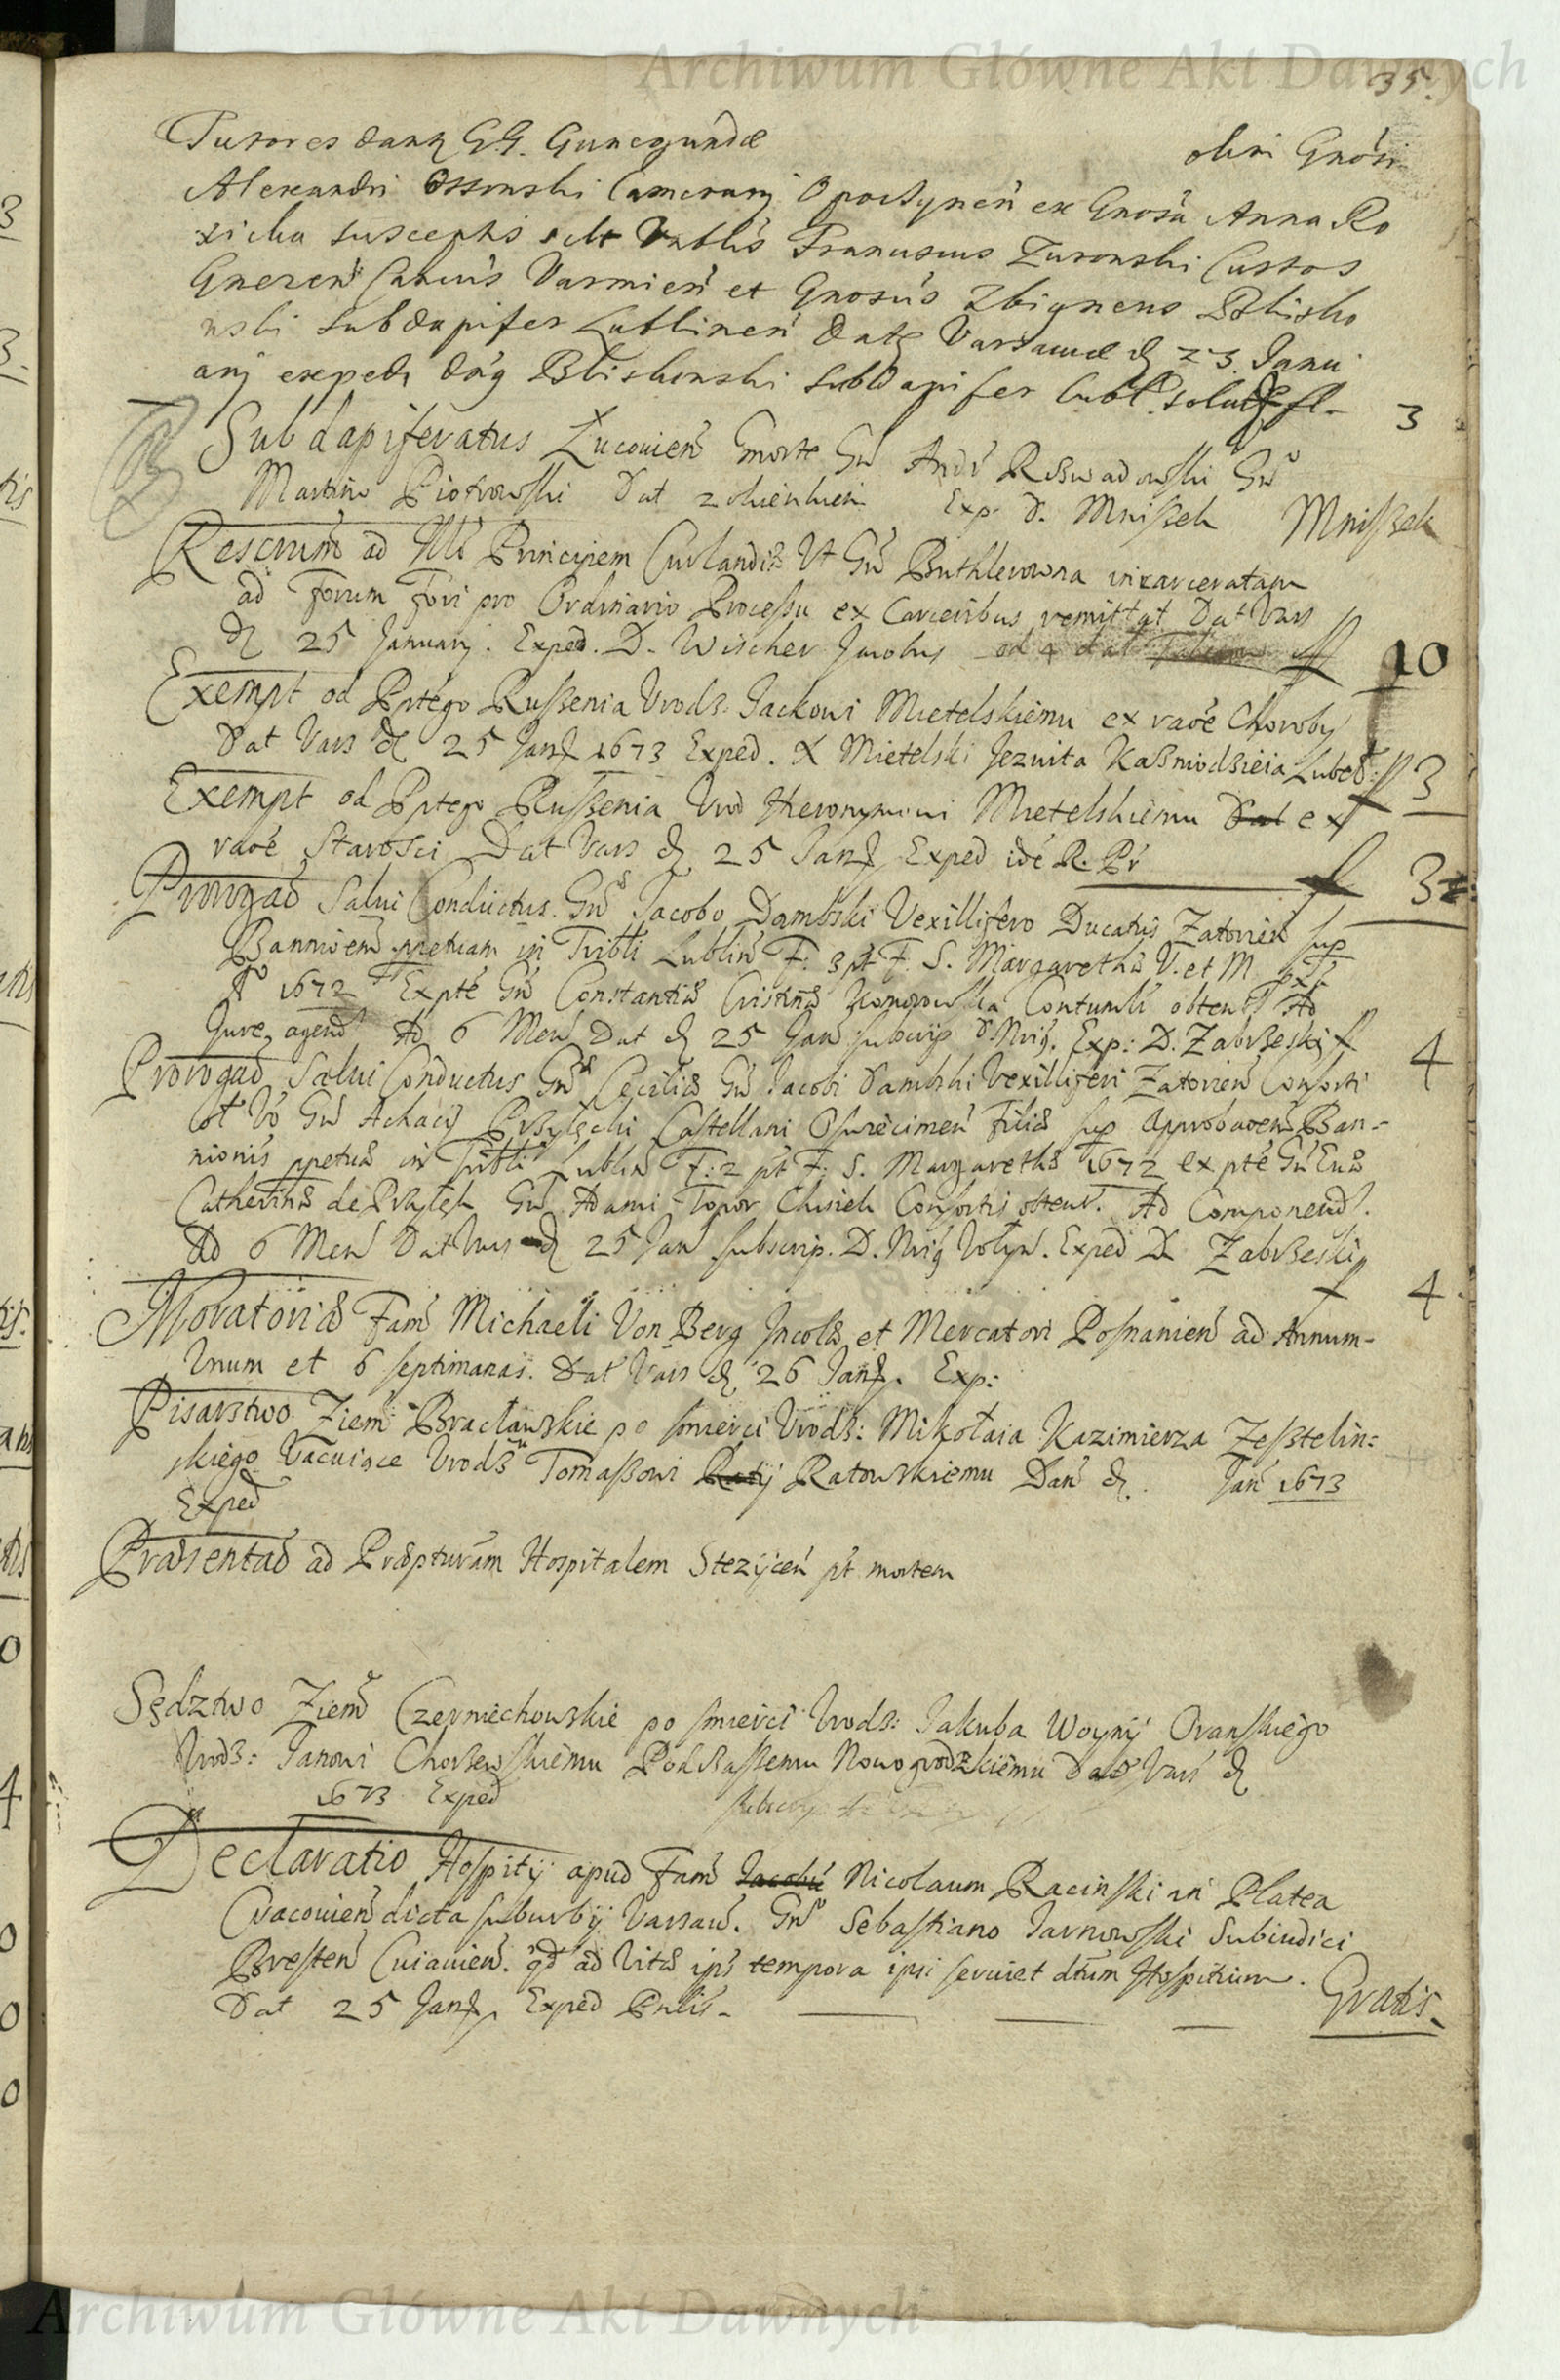 Archiwum Główne Akt Dawnych
35.
Tutores dantr GG. Cunegundæ olim Gnosi
Alexandri Ossonski Camerarij Opoctynen ex Gnosa Anna Ro
xicka susceptis scilt Vnblis Franciscus Zuronski Custos
Gnezen Cancus Varmien et Gnosus Zbigneus Blisko
wski Subdapifer Lublinen Dat Varsauiæ d 23 Janu
arij exped Dng Bliskowski Subdapifer Lubl. soluit fl. 3
Subdapiferatus Lucouien morte Gn Andr Roswadowski Gn
Martino Piotrowski Dat Exp. D. Mniszek Mniszek
Rescrium ad Illu Principem Curlandiæ Vt Gn Buthlerowna incarceratam
ad Forum Fori pro Ordinario Processu ex Carceribus remittat Dat Vars
d 25 January. Exped. D. Wischer Jacobus od 4 dat ff 10
Exempt od Pptego Ruszenia Vrodz. Jackowi Mietelskiemu ex raoe Choroby
Dat Vars d 25 Jan 1673 Exped. X Mietelski Jezuita Kasnodzieia Lubel: ff 3
Exempt od Pptego Ruszenia Vrod Hieronymowi Mietelskiemu Dat ex
raoe Starosci Dat Vars d 25 Jan Exped ide R. Pr f 3
Prorogao Salui Conductus Gn Jacobo Dambski Vexillifero Ducatus Zatorien sup
Bannioem ppetuam in Tribli Lublin F: 3 pt F. S. Margarethæ V. et M px
Ao 1672 Expte Gn Constantiæ Cristinæ Komorowska Contumli obtent Ad
Jure agend Ad 6 Men Dat d 25 Jan subscrip D. Exp: D. Zabrzeski f 4
Prorogao Salui Conductus Gn Ceciliæ Gn Jacobi Dambski Vexilliferi Zatorien Consorti
ot Vo Gn Achacy Przyłęcki Castellani Oswiecimen Filiæ sup Approbaoem Ban-
nionis ppetuæ in Tribli Lublin F: 2 pt F. S. Margarethæ 1672 ex pte Gn Euæ
Catherinæ de Przyłęk Gn Adami Topor Chisieh Consortis obtent. Ad Componend.
Ad 6 Men Dat Vars d 25 Jan subscrip. D. Wolyn. Exped D Zabrzeski f 4.
Moratoriæ Fam Michaeli Von Berg Incolæ et Mercatori Posnanien ad Annum-
Vnum et 6 septimanas. Dat Vars d 26 Jan. Exp:
Pisarstwo Ziem Bracławskie po smierci Vrodz: Mikołaia Kazimierza Zesztelin=
skiego Vacuiące Vrodz Tomaszowi Raty Ratowskiemu Dan d. Jan 1673
Exped
Præsentao ad Præpturam Hospitalem Stezycen pt mortem
Sędztwo Ziem Czerniechowskie po smierci Vrodz: Jakuba Woyny Oranskiego
Vrodz: Janowi Chorzewskiemu Podczaszemu Nowogrodzkiemu Dat Vars d
1673 Exped
Declaratio Hospity apud Fam Jacobu Nicolaum Racinski in Platea
Cracouien dicta suburbij Varsau. Gn Sebastiano Jarnowski Subiudici
Bresten Cuiauien. qd ad Vitæ ips tempora ipsi seruiet dtum Hospitium.
Dat 25 Jan Exped Gratis.
Archiwum Główne Akt Dawnych